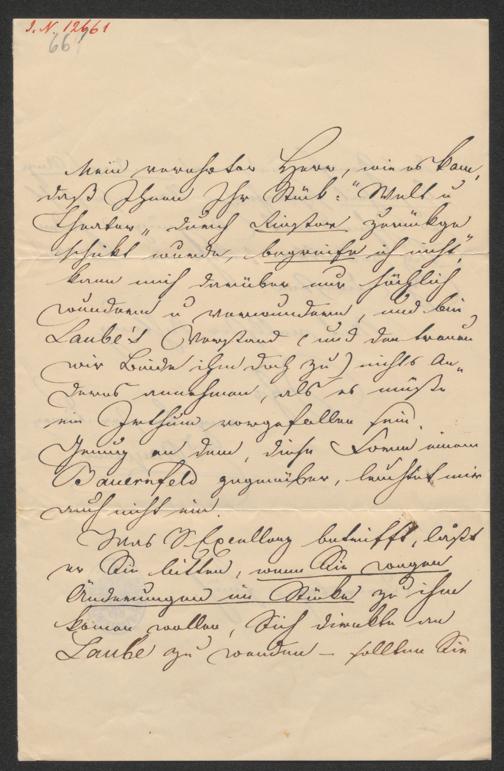 I. N. 12661
66
Mein verehrter Herr, wie es kam,
daß Ihnen Ihr Stük: "Welt u
Theater" durch zurükge
schikt wurde, begreife ich nicht,
kann mich darüber nur höchlich
wundern u verwundern, und bei
Laube's Verstand (und den trauen
wir Beide ihm doch zu) nichts An„
deres annehmen, als es müße
ein Irthum vorgefallen sein.
Genug an dem, diese Form einem
Bauernfeld gegenüber, leuchtet mir
auch nicht ein.
Was S. Excellenz betrifft, läßt
er Sie bitten, wenn Sie wegen
Änderungen im Stüke zu ihm
komen wollen, Sich direkte an
Laube zu wenden – sollten Sie